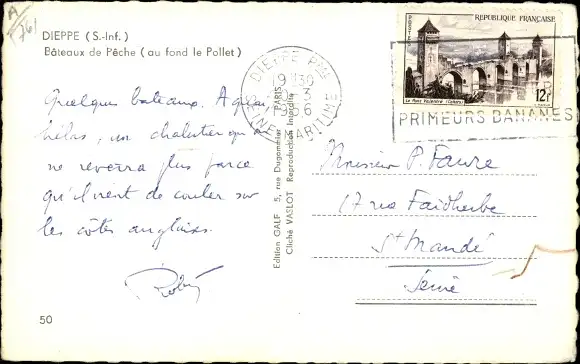 A
761
DIEPPE (S.-Inf.)
Bâteaux de Pêche (au fond le Pollet)
Quelques bateaux. A quai
hélas, un chalutier qu'on
ne reverra plus parce
qu'il vient de couler sur
les côtes anglaises.
Robin
50
Edition GALF 5, rue Dugommier PARIS
Cliché VASLOT Reproduction Interdite
DIEPPE Pal
19H30
-3
1956
SEINE MARITIME
REPUBLIQUE FRANÇAISE
Le Pont Valentré (Cahors)
12F
PRIMEURS BANANES
Monsieur P. Favre
17 rue Faidherbe
St Mandé
Seine